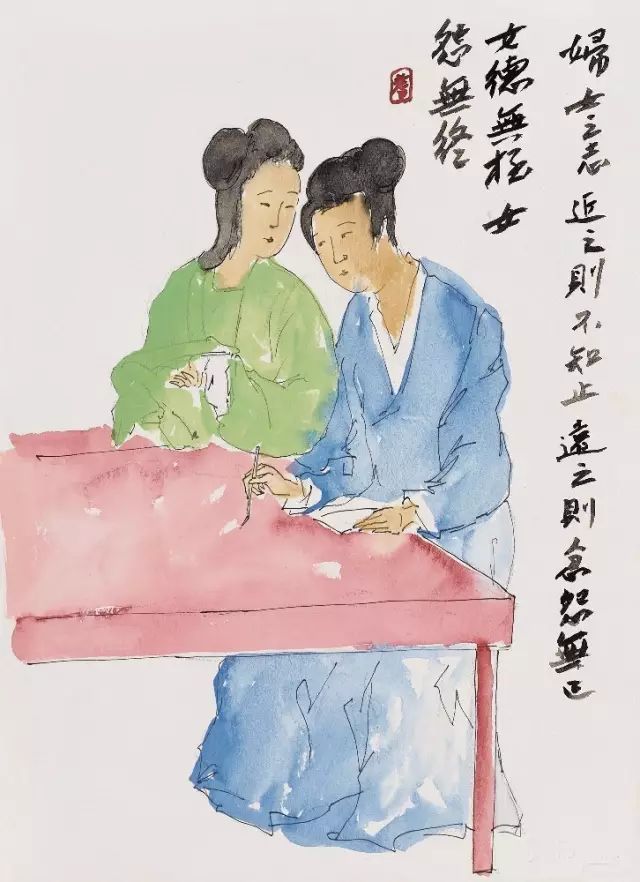 婦女之志近之則不知止遠之則忿怨無已
女德無极女
怨無終